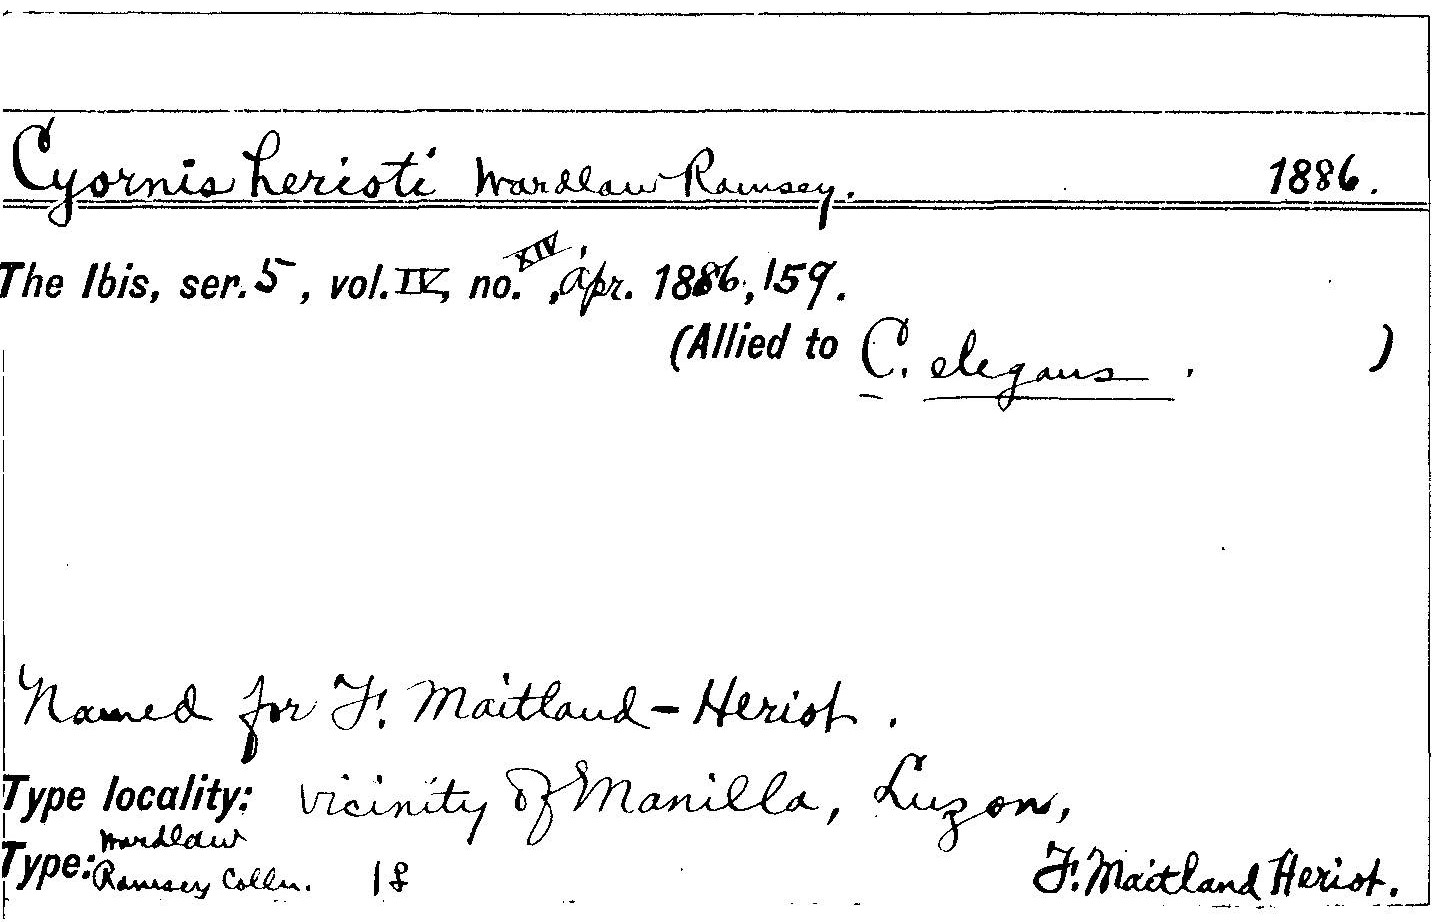 Cyornis herioti Wardlaw Ramsey. 1886.
The Ibis, ser. 5, vol. IV, no. XIV, Apr. 1886, 159.
(Allied to C. elegans . )
Named for F. Maitland-Heriot.
Type locality: vicinity of Manilla, Luzon,
Type: Wardlaw Ramsey Colln. 1 F. Maitland Heriot.